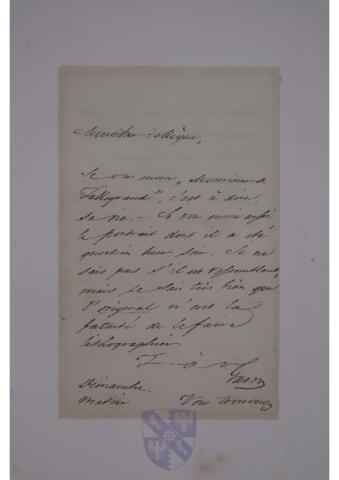 Mon cher Collègue,
Je vous envoie „Monsieur de
Talleyrand", c'est à dire,
sa vie. — Je vous envoie aussi
le portrait dont il a été
question hier soir. Je ne
sais pas s'il est ressemblant,
mais je sais très bien que
l'original n'eut la
fatuité de le faire
lithographier.
T. à v.
Dimanche
matin
Vous trouverez